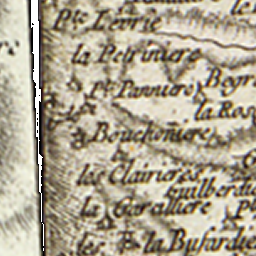 Pte Levrie
la Petriniere
Pte Panniere
la Ros
Bouchoniere
les Clairieres
Guilberdie
la Garilliere
les
la Busardie